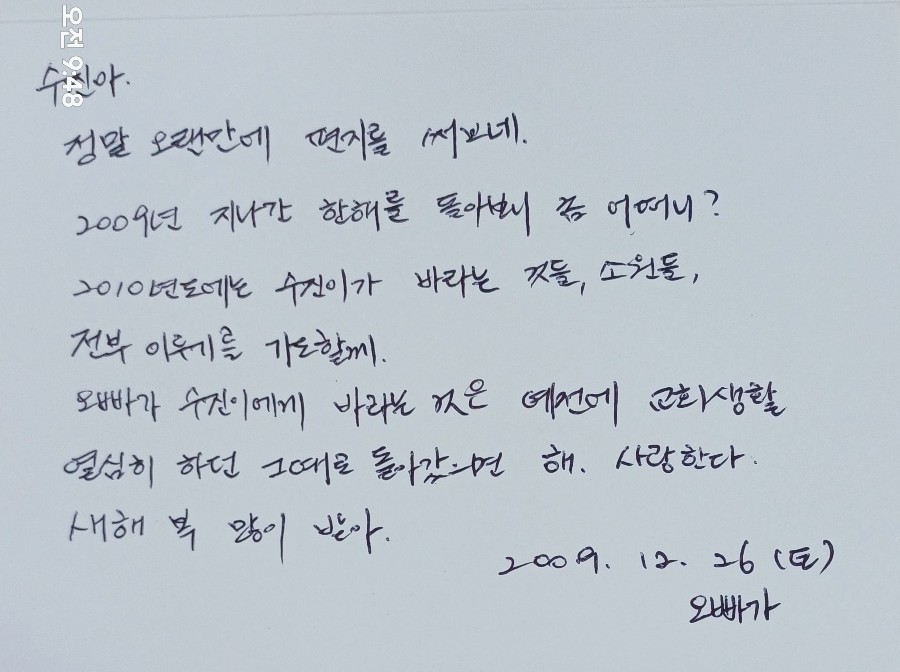 오전 9:48
수진아.
정말 오랜만에 편지를 써보네.
2009년 지나간 한해를 돌아보니 좀 어떠니?
2010년도에는 수진이가 바라는 것들, 소원들,
전부 이루기를 기도할께.
오빠가 수진이에게 바라는 것은 예전에 교회생활
열심히 하던 그때로 돌아갔으면 해. 사랑한다.
새해 복 많이 받아.
2009. 12. 26 (토)
오빠가